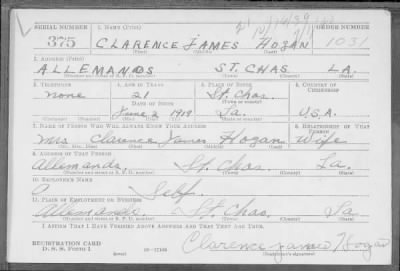 SERIAL NUMBER 1. NAME (Print) ORDER NUMBER
375 CLARENCE JAMES HOGAN 1031
(First) (Middle) (Last)
2. ADDRESS (Print)
ALLEMANDS ST. CHAS. LA.
(Number and street or R. F. D. number) (Town) (County) (State)
3. TELEPHONE 4. AGE IN YEARS 5. PLACE OF BIRTH 6. COUNTRY OF CITIZENSHIP
none 21 St. Chas.
DATE OF BIRTH (Town or county)
June 2 1919 La. U.S.A.
(Mo.) (Day) (Yr.) (State or country)
7. NAME OF PERSON WHO WILL ALWAYS KNOW YOUR ADDRESS 8. RELATIONSHIP OF THAT PERSON
Mrs Clarence James Hogan Wife
(Mr., Mrs., Miss) (First) (Middle) (Last)
9. ADDRESS OF THAT PERSON
Allemands. St. Chas. La.
(Number and street or R. F. D. number) (Town) (County) (State)
10. EMPLOYER'S NAME
Self.
11. PLACE OF EMPLOYMENT OR BUSINESS
Allemands St. Chas. La
(Number and street or R. F. D. number) (Town) (County) (State)
I AFFIRM THAT I HAVE VERIFIED ABOVE ANSWERS AND THAT THEY ARE TRUE.
REGISTRATION CARD
D. S. S. Form 1 Clarence James Hogan
(Registrant's signature)